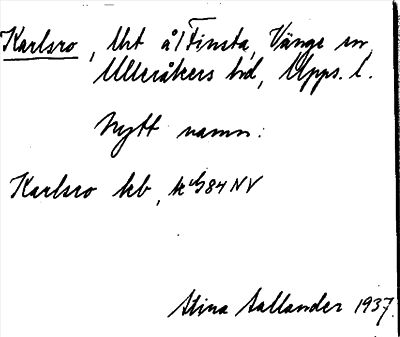 Karlsro, lht å Finsta, Vänge sn,
Ulleråkers hd, Upps. l.
Nytt namn.
Karlsro hb, 84 NV
Stina Sallander 1937.